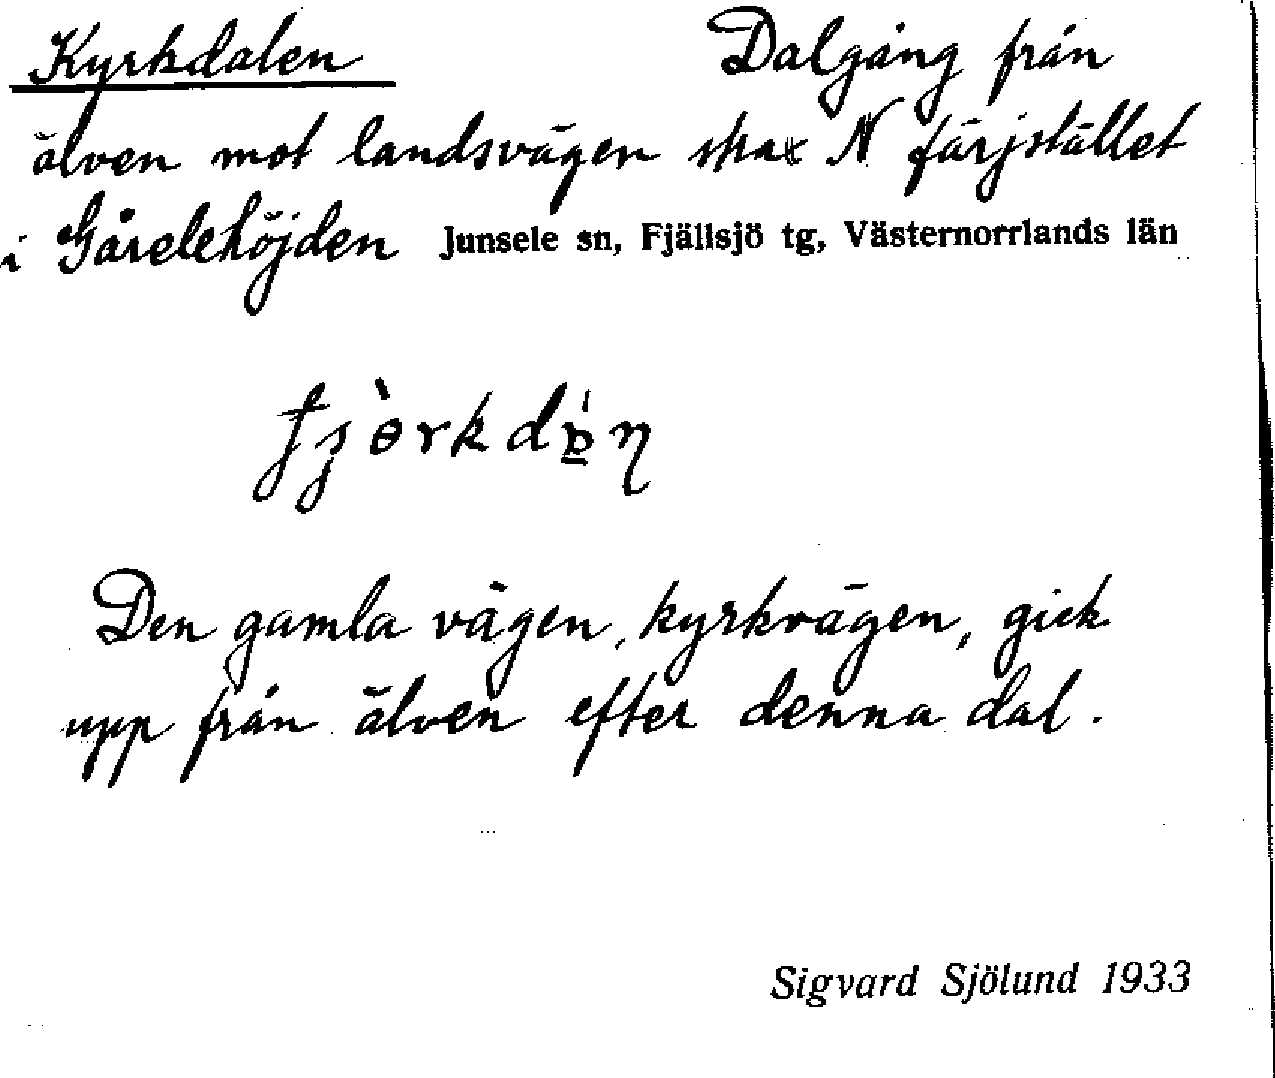 Kyrkdalen Dalgång från
älven mot landsvägen strax N färjstället
i Gårelehöjden Junsele sn, Fjällsjö tg, Västernorrlands län
Den gamla vägen, kyrkvägen, gick
upp från älven efter denna dal.
Sigvard Sjölund 1933